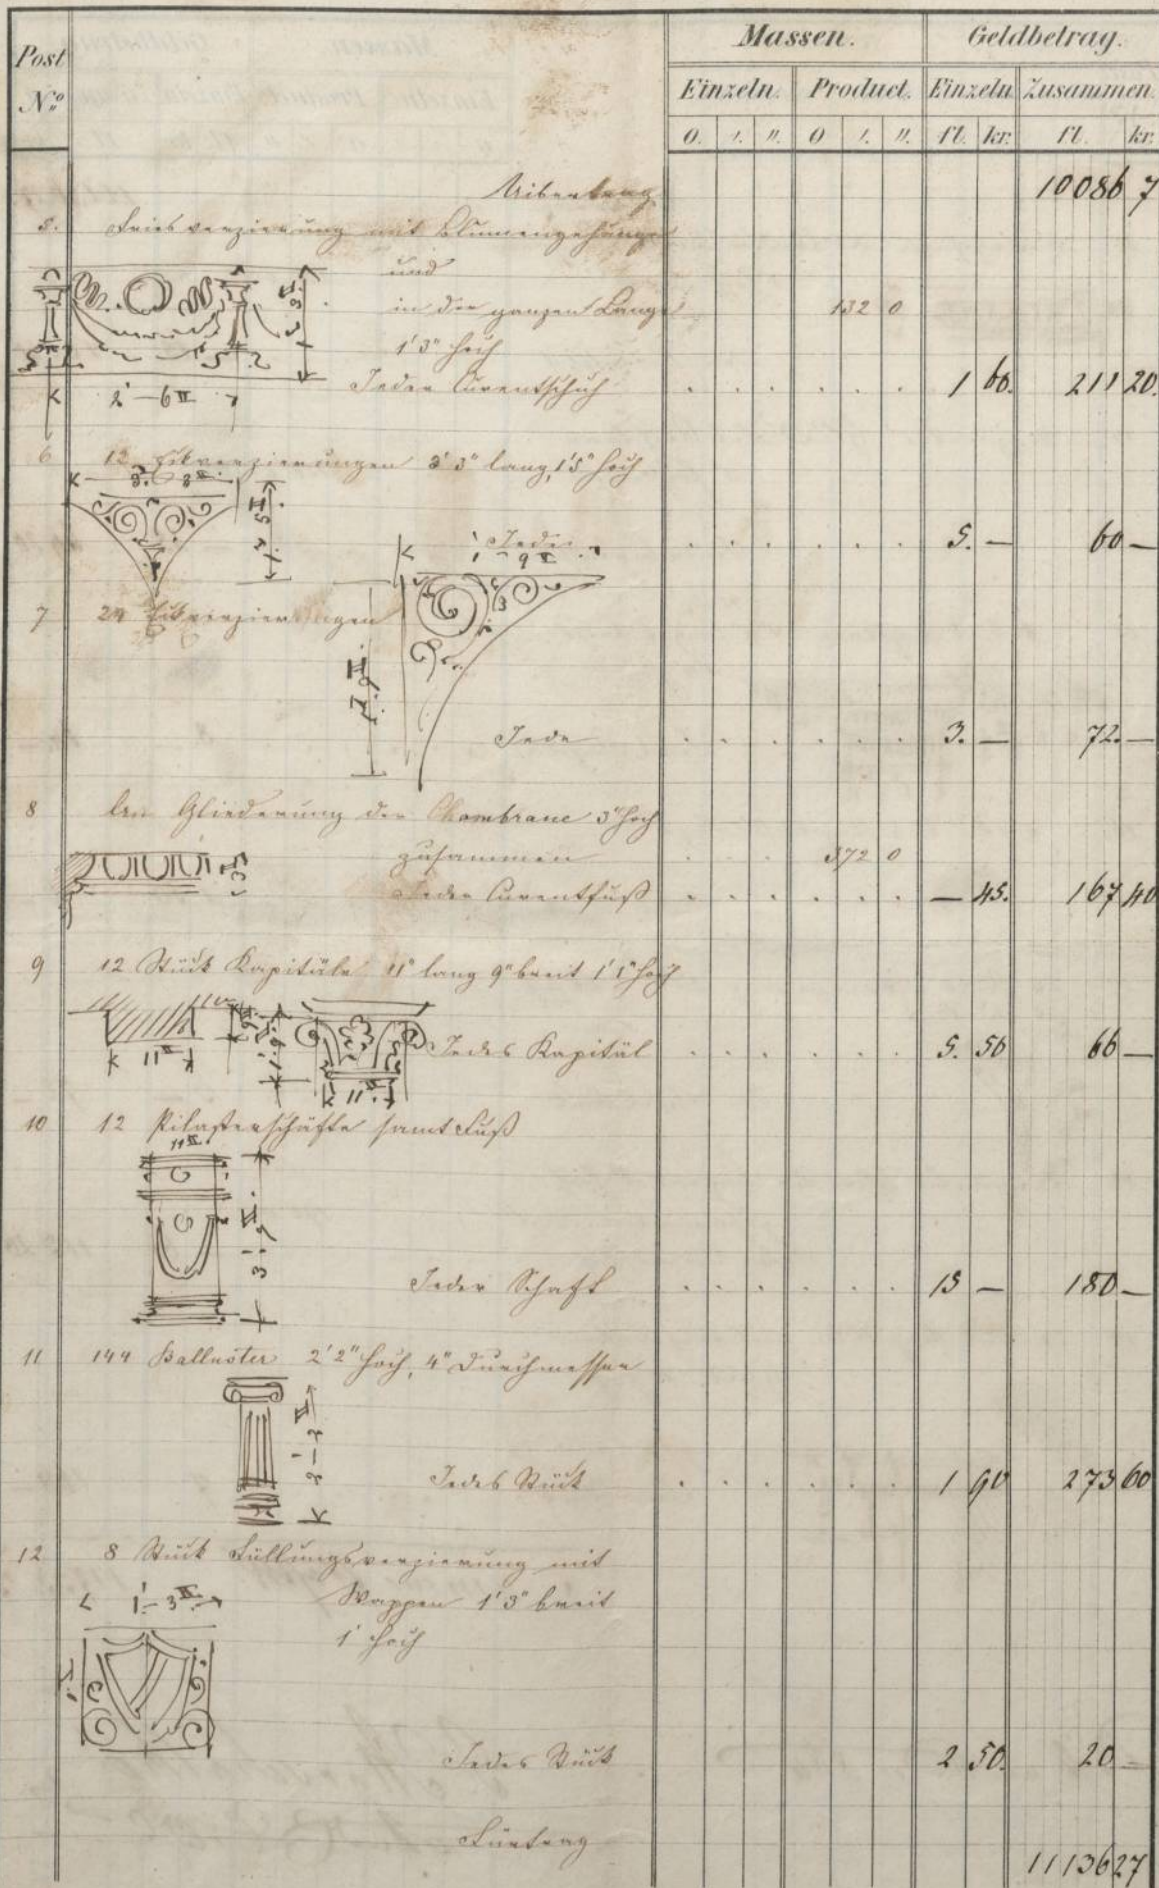 Post No Massen. Geldbetrag.
Einzeln. Product. Einzeln Zusammen.
0. ′. ″. 0 ′. ″. fl. kr. fl. kr.
Uibertrag 10086 7
5. Friesverzierung mit Blumengehänge
und
in der ganzen Länge 132 0
1'3" hoch
Jeder Curentschuh 1 60. 211 20.
2'-6"
6 12 Eckverzierungen 3'3" lang, 1'5" hoch
Jede 5. — 60 —
1'-9"
7 24 Eckverzierungen
Jede 3. — 72. —
8 Gliederung der Chambrane 3" hoch
zusammen 372 0
Jeder Curentfuß — 45. 167 40
9 12 Stück Kapitäle 11" lang 9" breit 1'1" hoch
11"
Jedes Kapitäl 5. 50 66 —
11"
10 12 Pilasterschäfte samt Fuß
11"
Jeder Schaft 15 — 180 —
11 144 Balluster 2'2" hoch, 4" Durchmesser
2'-2"
Jedes Stück 1 90 273 60
12 8 Stück Füllungsverzierung mit
1'-3" Wappen 1'3" breit
1' hoch
1'
Jedes Stück 2 50. 20 —
Fürtrag
11136 27